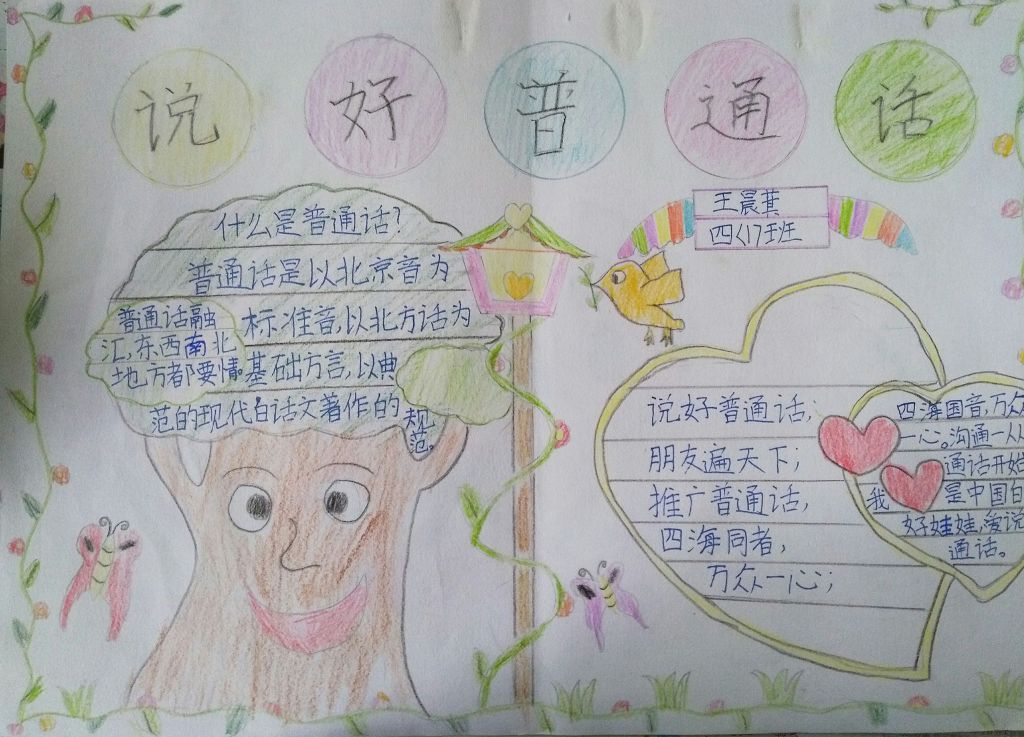 说好普通话
王晨萁
四〈1〉班
什么是普通话?
普通话是以北京音为
标准音,以北方话为
基础方言,以典
范的现代白话文著作的
规
范。
普通话融
汇,东西南北
地方都要情。
说好普通话;
朋友遍天下;
推广普通话,
四海同者,
万众一心;
四海国音,万众
一心。沟通一从
通话开始
我 是中国白
好娃娃,爱说
通话。